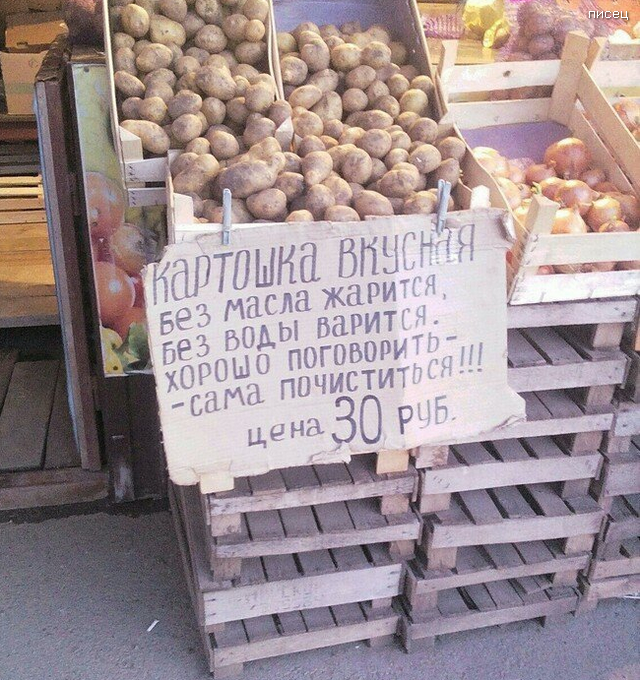 писец
КАРТОШКА ВКУСНАЯ
БЕЗ МАСЛА ЖАРИТСЯ,
БЕЗ ВОДЫ ВАРИТСЯ.
ХОРОШО ПОГОВОРИТЬ-
-САМА ПОЧИСТИТЬСЯ!!!
ЦЕНА 30 РУБ.